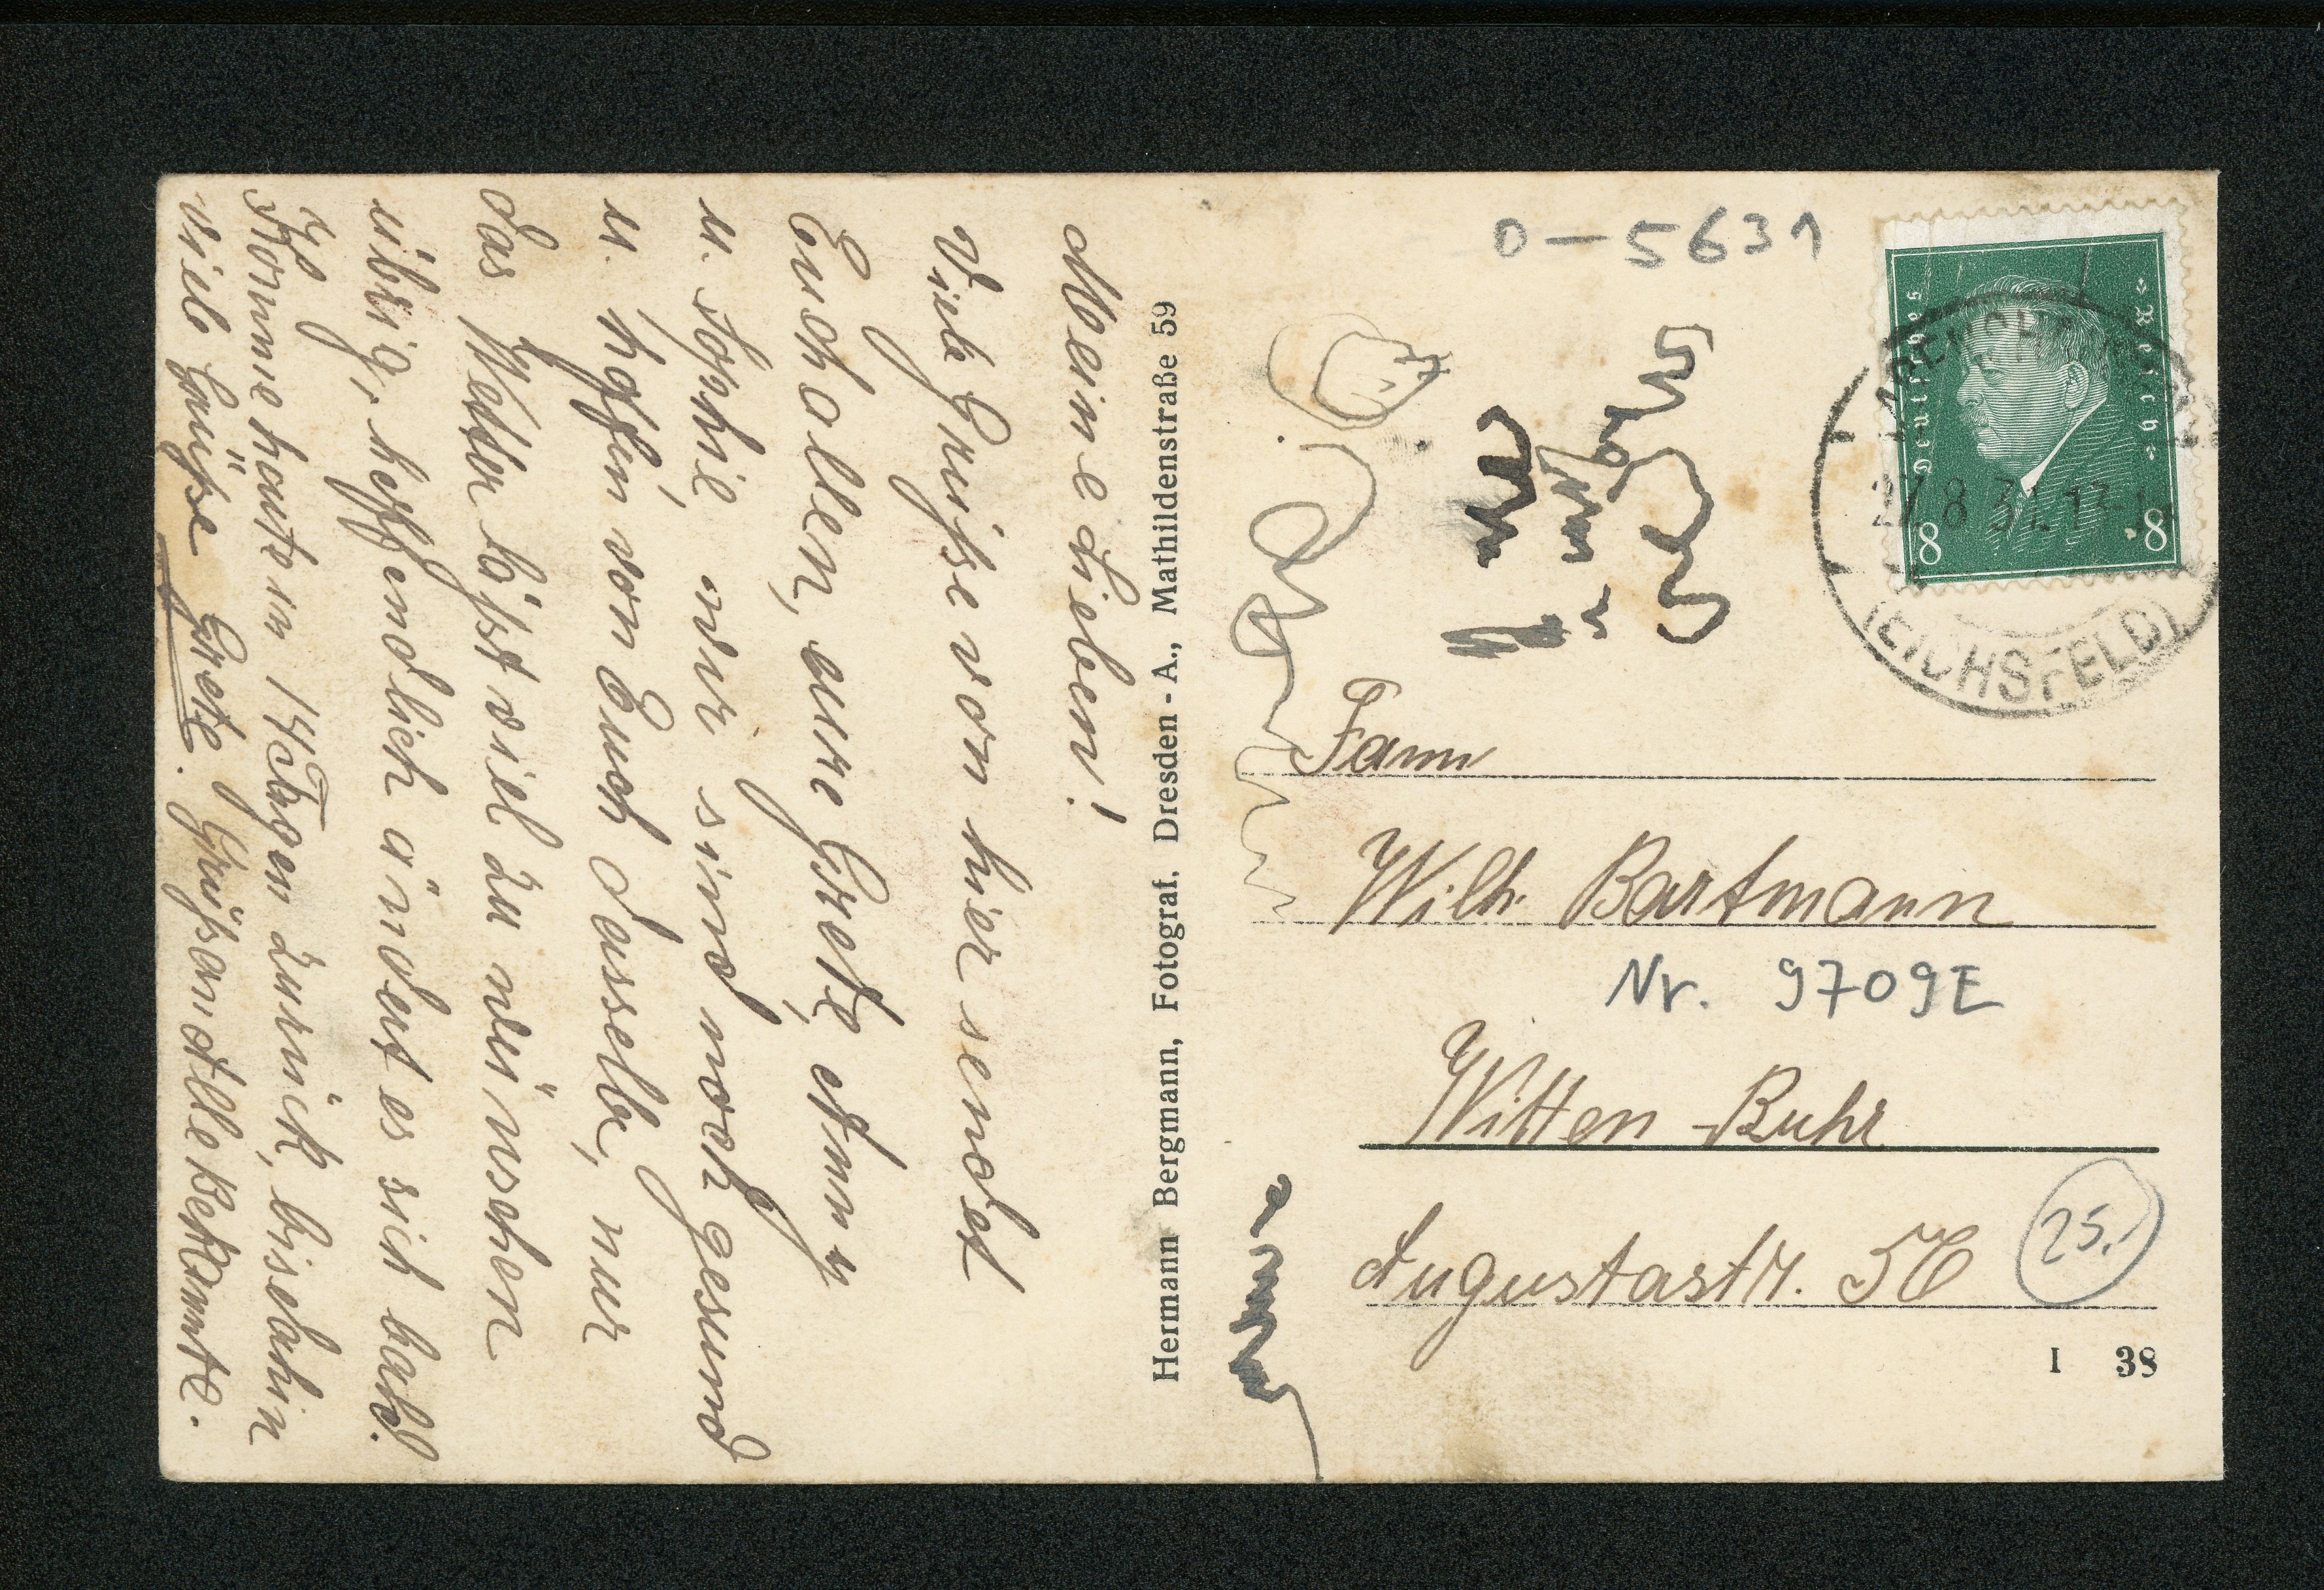 Meine Lieben!
Viele Grüsse von hier sendet
Euch allen, eure Grete, Anny
u. Sophie wir sind noch gesund
u. hoffen von Euch dasselbe, nur
das Wetter läßt viel zu wünschen
übrig, hoffendlich ändert es sich bald.
Komme heute in 14 Tagen zurück, bis dahin
viele Grüße Grete. Grüß an Alle Bekannte.
Hermann Bergmann, Fotograf. Dresden - A., Mathildenstraße 59
0-5631
Deutsches Reich
8 8
27.8.31.
(EICHSFELD)
Fam
Wilh. Bartmann
Nr. 9709E
Witten-Ruhr
Augustastr.
25.
I 38